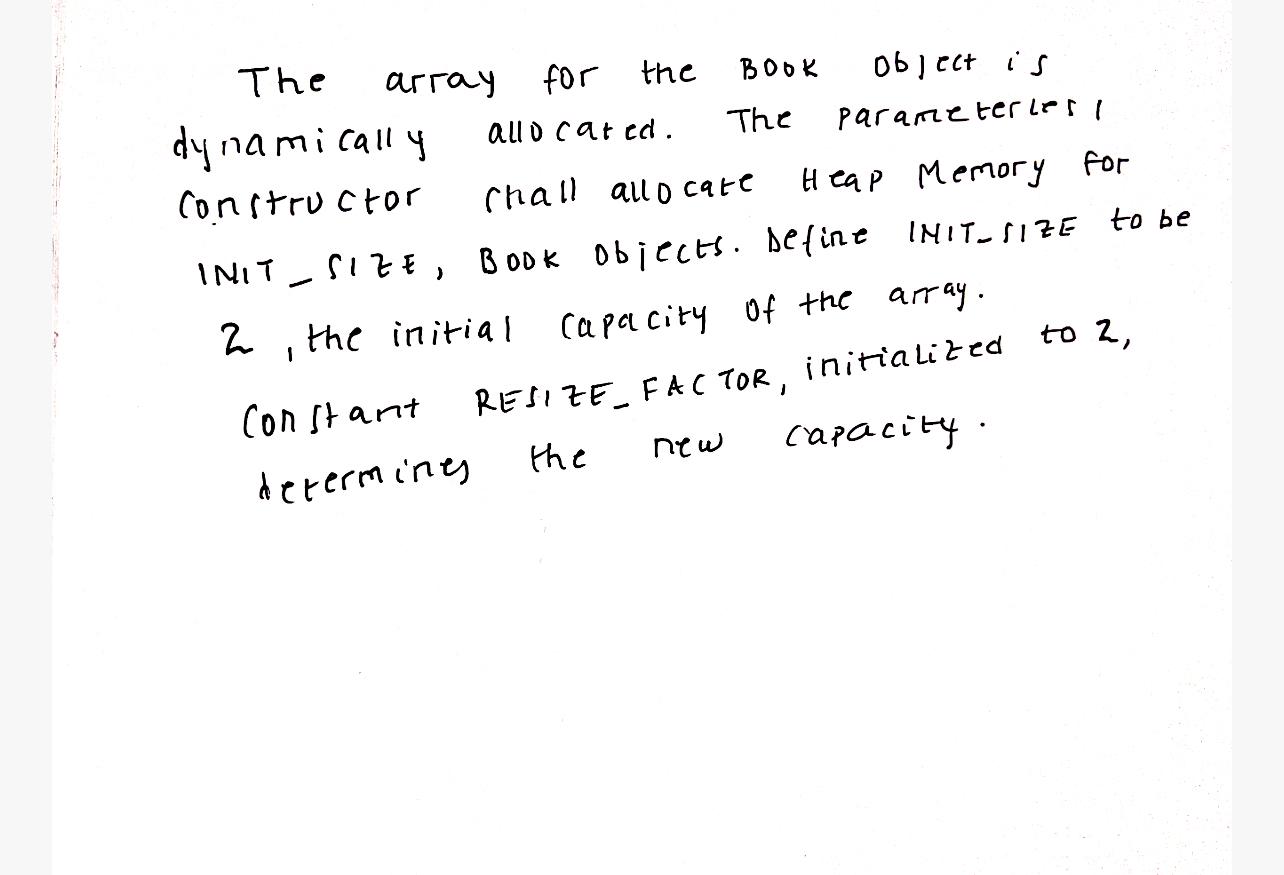 The array for the Book Object is
dynamically allocated. The parameterless
Constructor shall allocate Heap Memory for
INIT_SIZE, Book Objects. Define INIT_SIZE to be
2, the initial Capacity of the array.
Constant RESIZE_FACTOR, initialized to 2,
determines the new capacity.